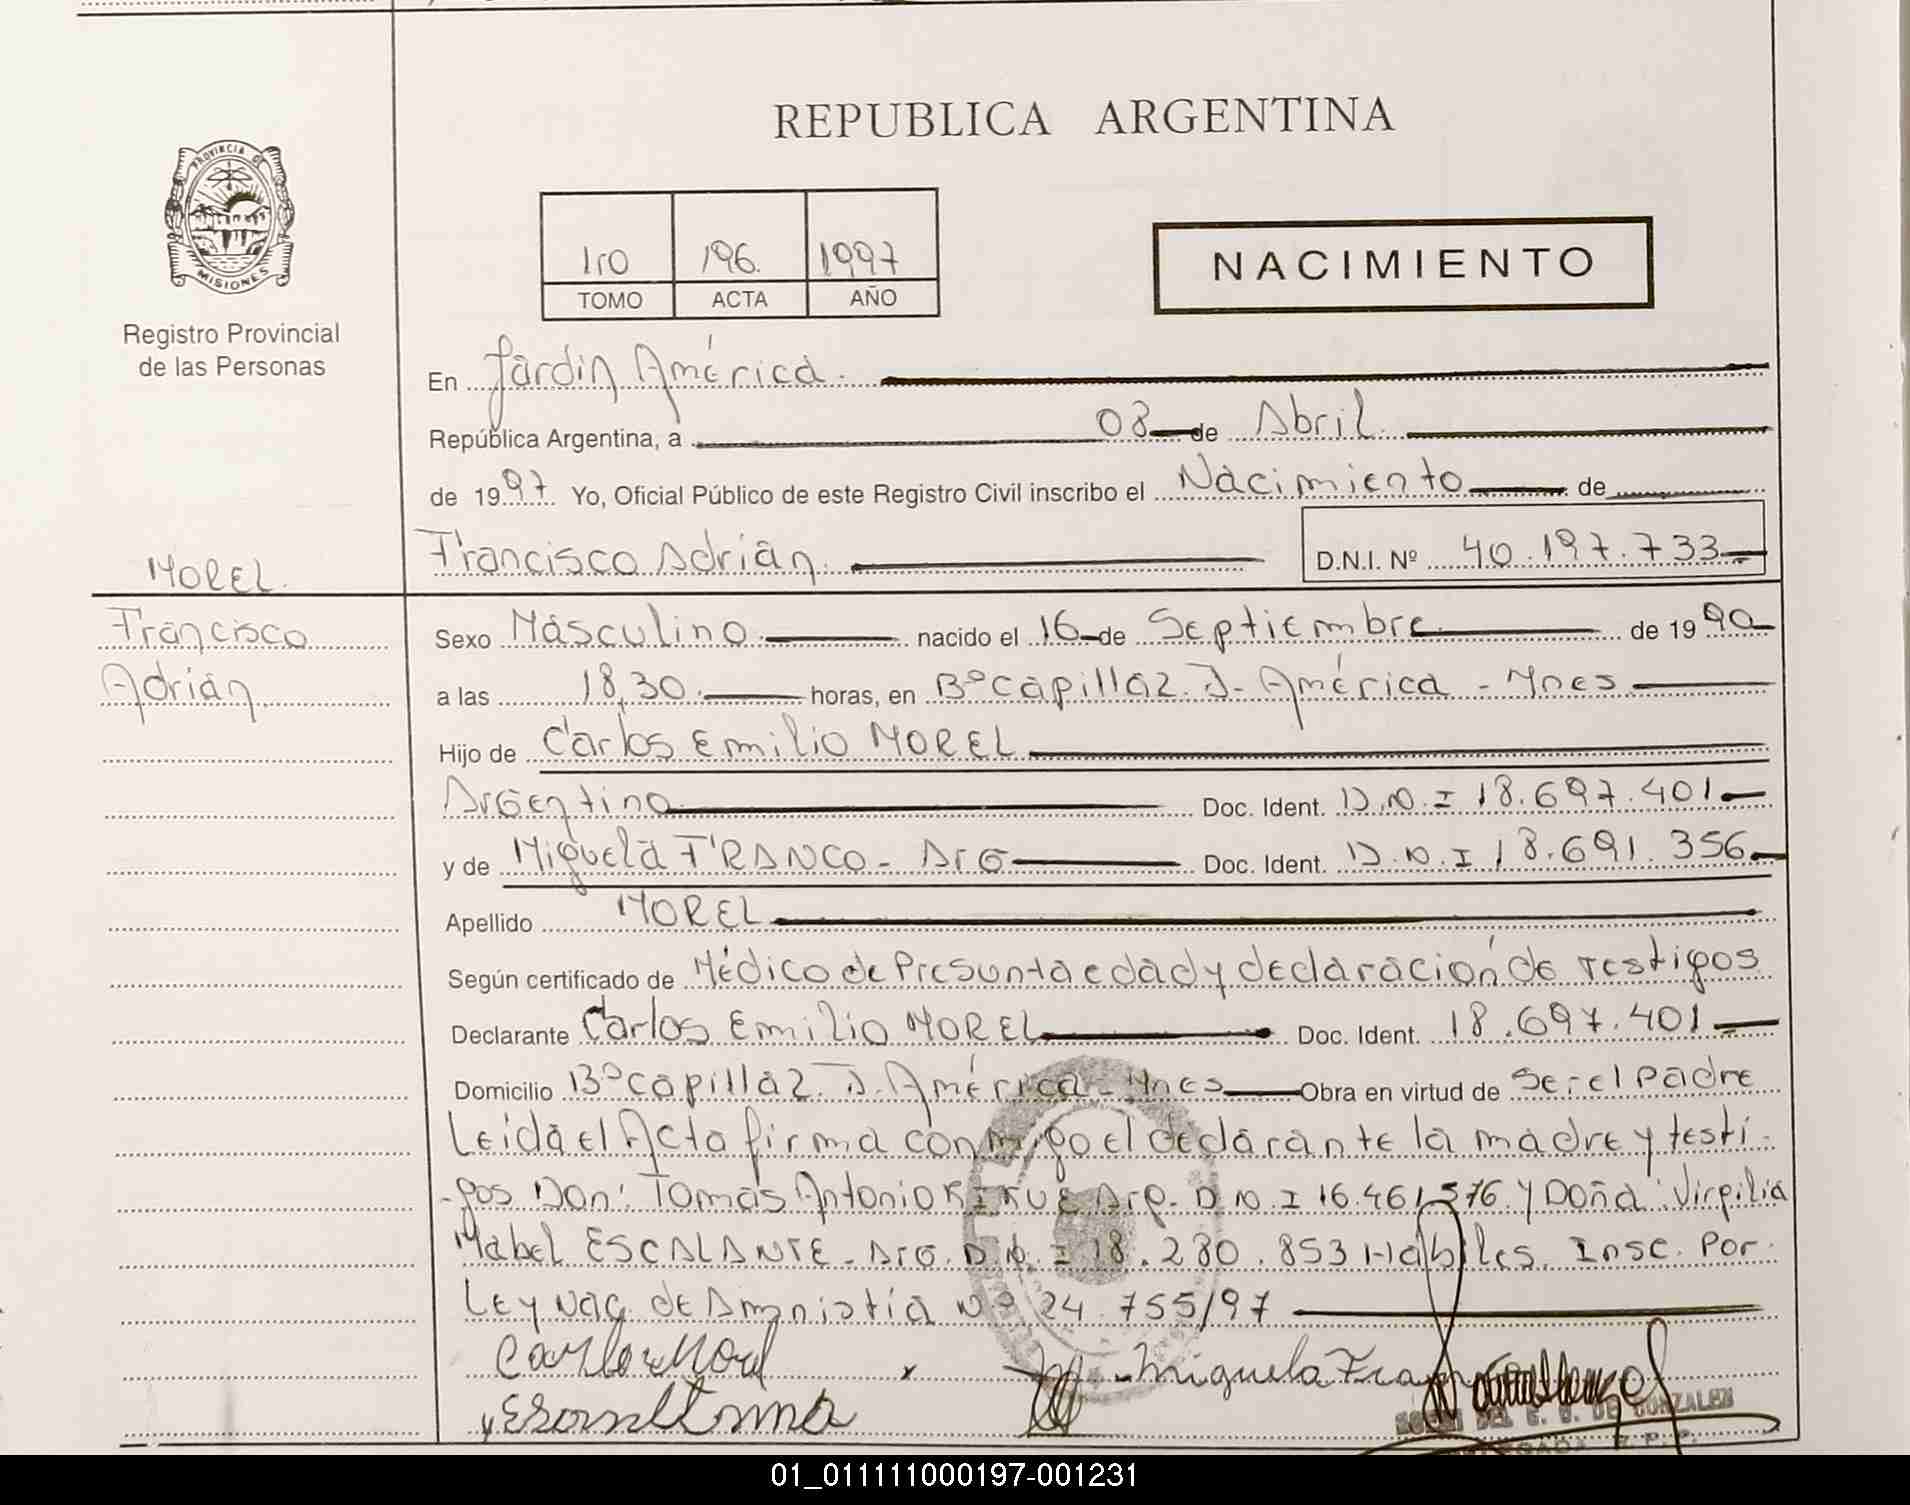 REPUBLICA ARGENTINA
PROVINCIA DE MISIONES
Registro Provincial
de las Personas
1ro 196. 1997
TOMO ACTA AÑO
NACIMIENTO
En Jardin América.
República Argentina, a 08 de Abril
de 1997. Yo, Oficial Público de este Registro Civil inscribo el Nacimiento de
Francisco Adrián D.N.I. Nº 40.197.733
MOREL.
Francisco
Adrián
Sexo Masculino nacido el 16 de Septiembre de 1990
a las 18,30. horas, en Bº Capilla 2. J. América - Mnes
Hijo de Carlos Emilio MOREL
Argentino Doc. Ident. D.N.I 18.697.401
y de Miguela FRANCO - Arg Doc. Ident. D.N.I 18.691.356
Apellido MOREL
Según certificado de Médico de Presunta edad y declaración de testigos
Declarante Carlos Emilio MOREL Doc. Ident. 18.697.401
Domicilio Bº Capilla 2. J. América - Mnes Obra en virtud de ser el padre
Leida el Acta firma conmigo el declarante la madre y testi
-gos Don: Tomás Antonio Arg. D N. I 16.461.576 y Doña: Virgilia
Mabel ESCALANTE - Arg. D.N. I 18.280.853 Hábiles. Insc. Por
Ley Nac. de Amnistía Nº 24.755/97
Carlos Morel Miguela
DE GONZALEZ
01_011111000197-001231